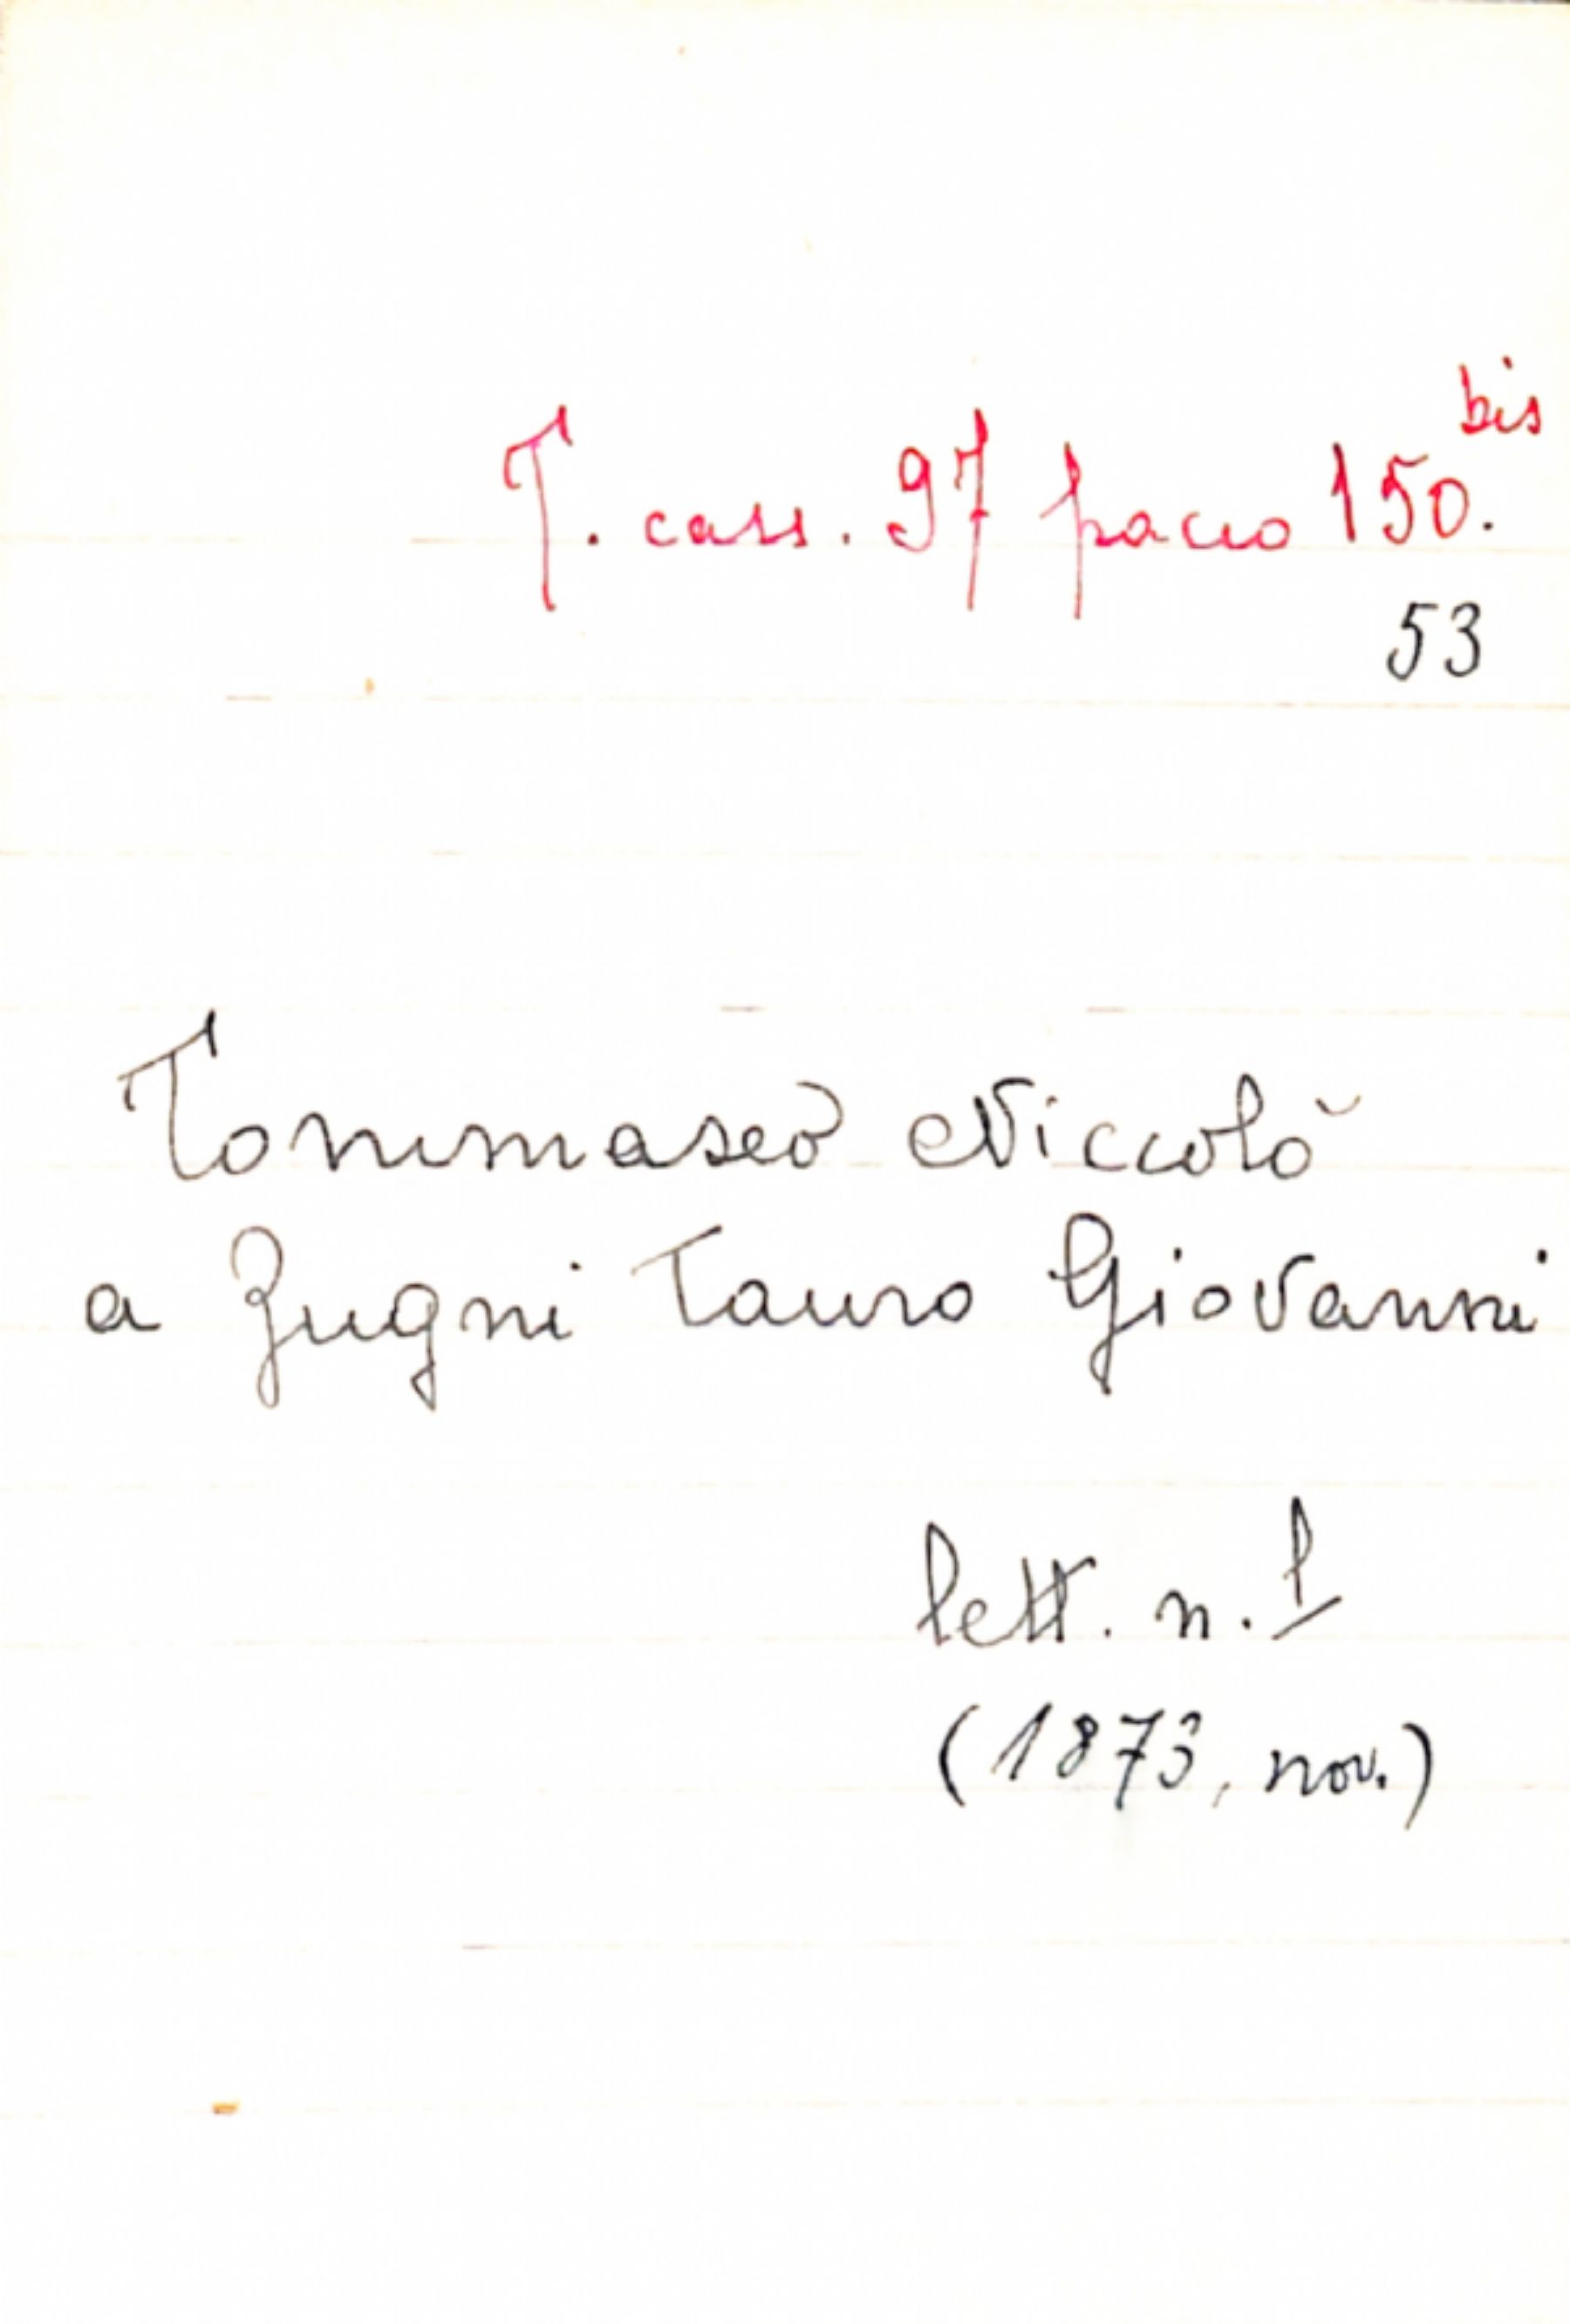 T. cass. 97 pacco 150. bis
53
Tommaseo Niccolò
a Zugni Tauro Giovanni
lett. n. 1
(1873, nov.)